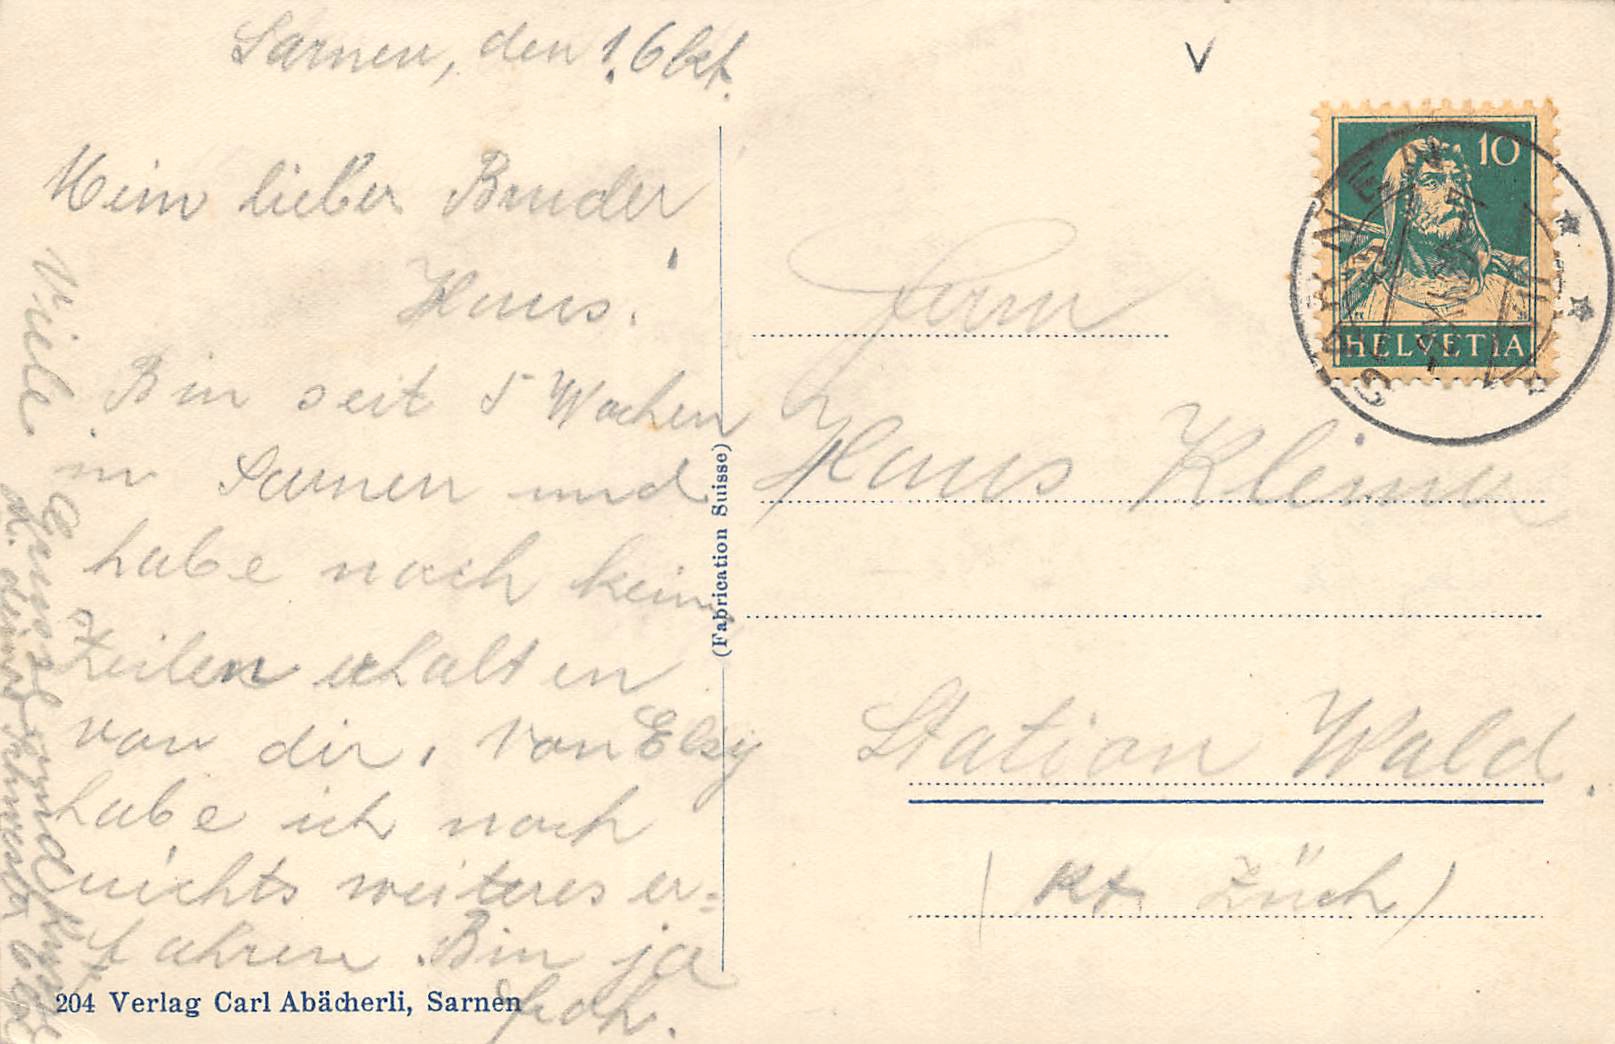 Sarnen, den 1. Okt.
Mein lieber Bruder
Hans.
Bin seit 5 Wochen
in Sarnen und
habe noch keine
Zeilen erhalten
von dir, von Elsy
habe ich noch
nichts weiteres er=
fahren. Bin ja
froh.
Viele Grüsse und Küsse
d. deine Schwester
204 Verlag Carl Abächerli, Sarnen
(Fabrication Suisse)
V
10
HELVETIA
SARNEN
Herrn
Hans Klemm
Station Wald
(Kt. Zürich)